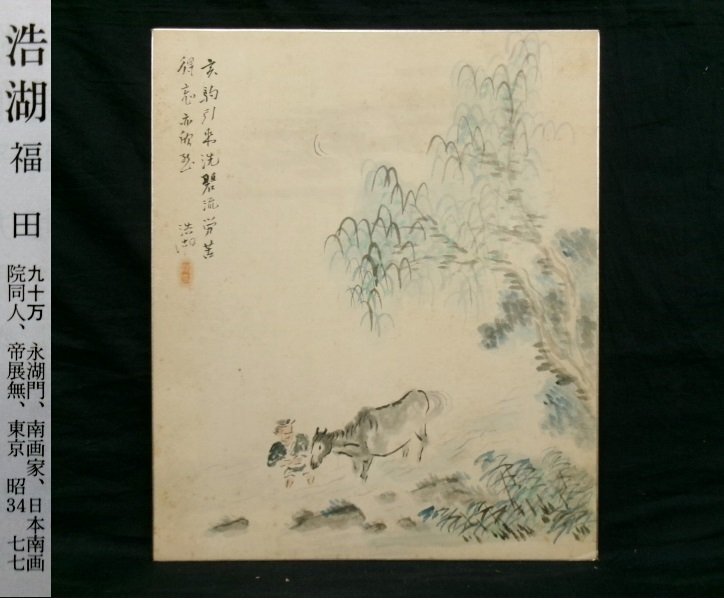 浩湖 福田
九十万 永湖門、南画家、日本南画
院同人、帝展無、東京 昭34 七七
駒引来洗碧流労苦
得
浩湖